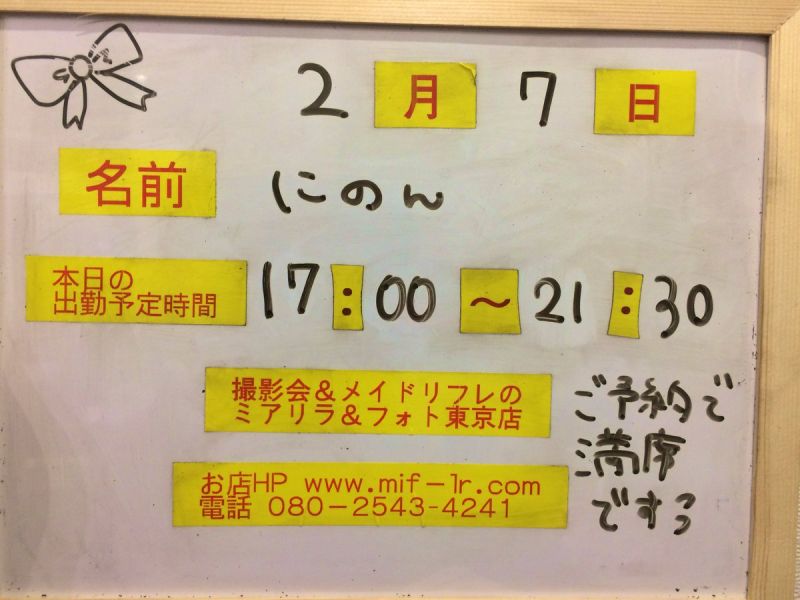 2月7日
名前 にのん
本日の
出勤予定時間 17:00～21:30
撮影会＆メイドリフレの
ミアリラ＆フォト東京店
お店HP www.mif-lr.com
電話 080-2543-4241
ご予約で
満席
ですっ